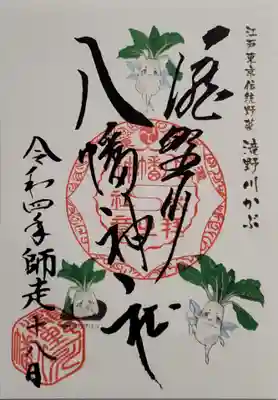 江戸東京伝統野菜 滝野川かぶ
滝野川
八幡神社
令和四年師走十八日